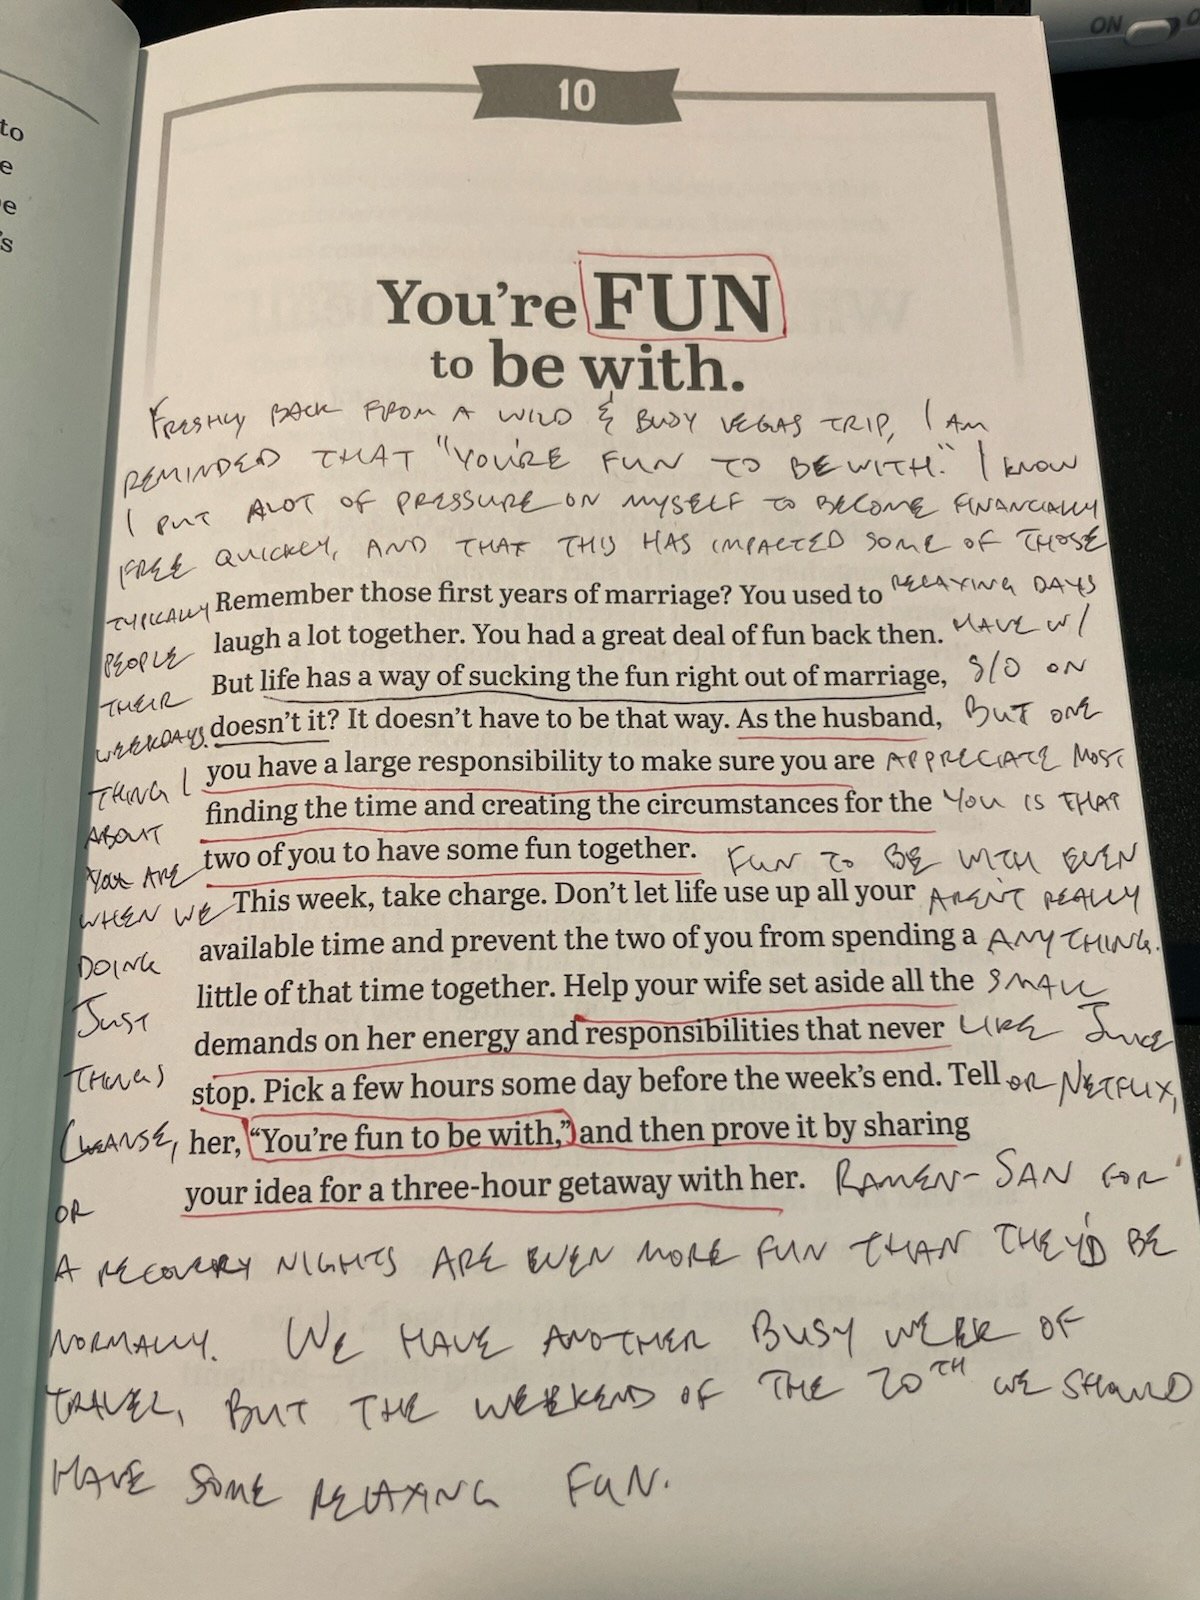 to
e
e
's
ON
10
You're FUN
to be with.
FRESHLY BACK FROM A WILD & BUSY VEGAS TRIP, I AM
REMINDED THAT "YOU'RE FUN TO BE WITH." I KNOW
I PUT ALOT OF PRESSURE ON MYSELF TO BECOME FINANCIALLY
FREE QUICKLY, AND THAT THIS HAS IMPACTED SOME OF THOSE
RELAXING DAYS
TYPICALLY
PEOPLE
HAVE W/
THEIR
S/O ON
WEEKDAYS.
BUT ONE
THING I
APPRECIATE MOST
ABOUT
YOU IS THAT
YOU ARE
FUN TO BE WITH EVEN
WHEN WE
AREN'T REALLY
DOING
ANYTHING.
JUST
SMALL
THINGS
LIKE JUICE
CLEANSE,
OR NETFLIX,
OR
RAMEN-SAN FOR
A RECOVERY NIGHTS ARE EVEN MORE FUN THAN THEY'D BE
NORMALLY. WE HAVE ANOTHER BUSY WEEK OF
TRAVEL, BUT THE WEEKEND OF THE 20TH WE SHOULD
HAVE SOME RELAXING FUN.
Remember those first years of marriage? You used to
laugh a lot together. You had a great deal of fun back then.
But life has a way of sucking the fun right out of marriage,
doesn't it? It doesn't have to be that way. As the husband,
you have a large responsibility to make sure you are
finding the time and creating the circumstances for the
two of you to have some fun together.
This week, take charge. Don't let life use up all your
available time and prevent the two of you from spending a
little of that time together. Help your wife set aside all the
demands on her energy and responsibilities that never
stop. Pick a few hours some day before the week's end. Tell
her, "You're fun to be with," and then prove it by sharing
your idea for a three-hour getaway with her.